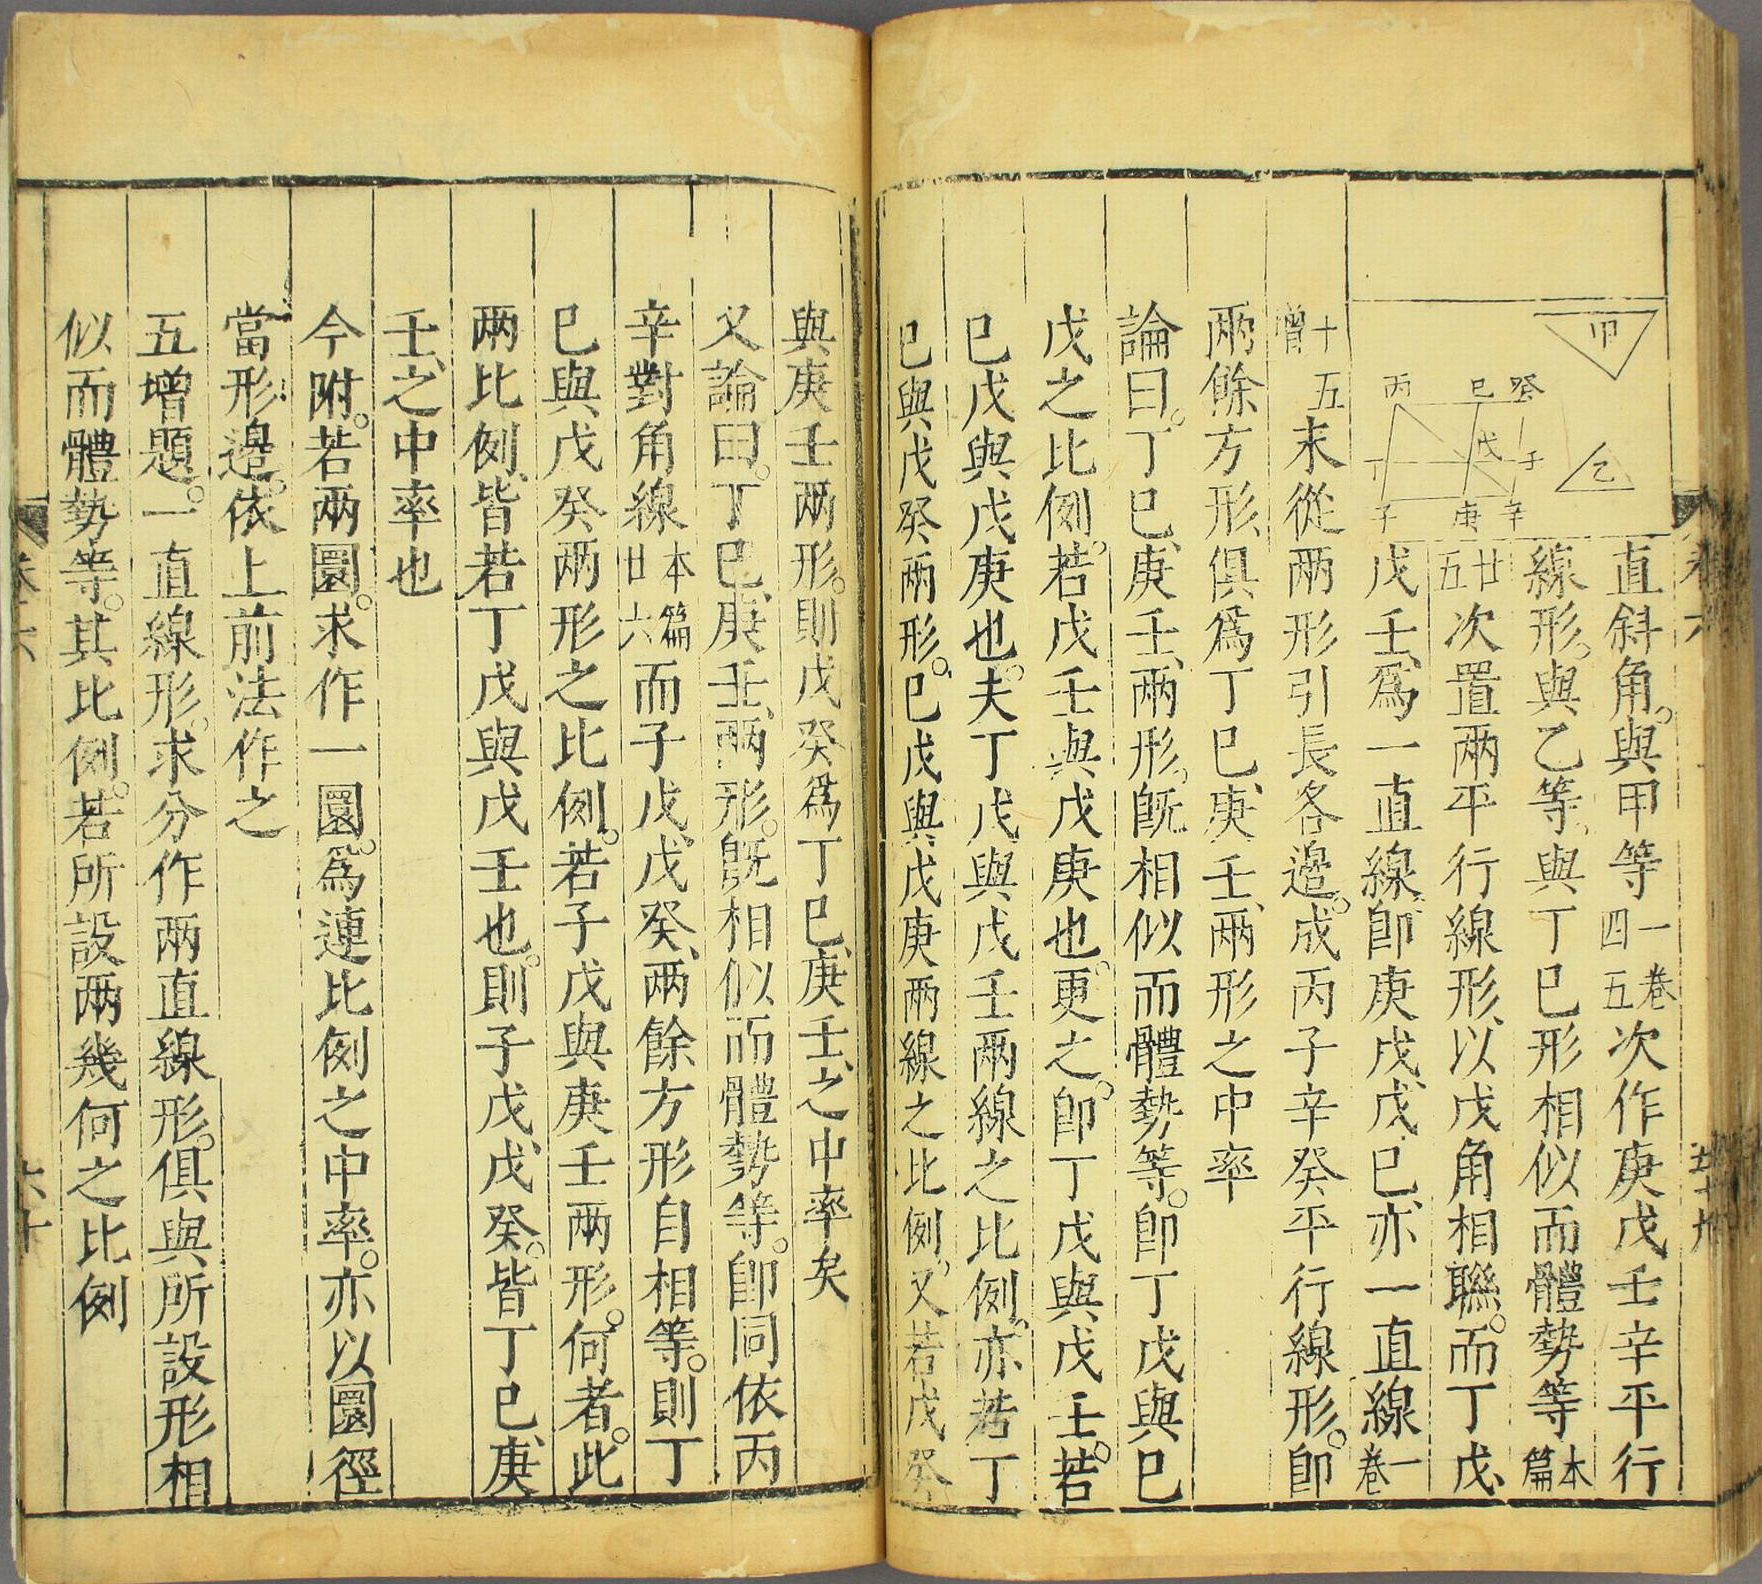 甲
乙
丙
己
癸
戊
子
丁
子
庚
辛
直斜角。與甲等一卷四五次作庚戊壬辛平行
線形。與乙等。與丁巳形相似而體勢等本篇
廿五次置兩平行線形、以戊角相聯。而丁戊、
戊壬、爲一直線、卽庚戊、戊巳、亦一直線一卷
十五增末從兩形引長各邉。成丙子辛癸平行線形。卽
兩餘方形、俱爲丁巳、庚壬、兩形之中率
論曰。丁巳、庚壬、兩形。旣相似而體勢等。卽丁戊與巳
戊之比例。若戊壬與戊庚也。更之。卽丁戊與戊壬。若
巳戊與戊庚也。夫丁戊與戊壬兩線之比例。亦若丁
巳與戊癸兩形。巳戊與戊庚兩線之比例。又若戊癸
與庚壬兩形。則戊癸爲丁巳、庚壬、之中率矣
又論曰。丁巳、庚壬、兩形。旣相似而體勢等。卽同依丙
辛對角線本篇廿六而子戊、戊癸、兩餘方形自相等。則丁
巳與戊癸兩形之比例。若子戊與庚壬兩形。何者。此
兩比例、皆若丁戊與戊壬也。則子戊、戊癸。皆丁巳、庚
壬、之中率也
今附。若兩圜。求作一圜。爲連比例之中率。亦以圜徑
當形邉。依上前法作之
五增題。一直線形。求分作兩直線形。俱與所設形相
似而體勢等。其比例。若所設兩幾何之比例
卷六
六十